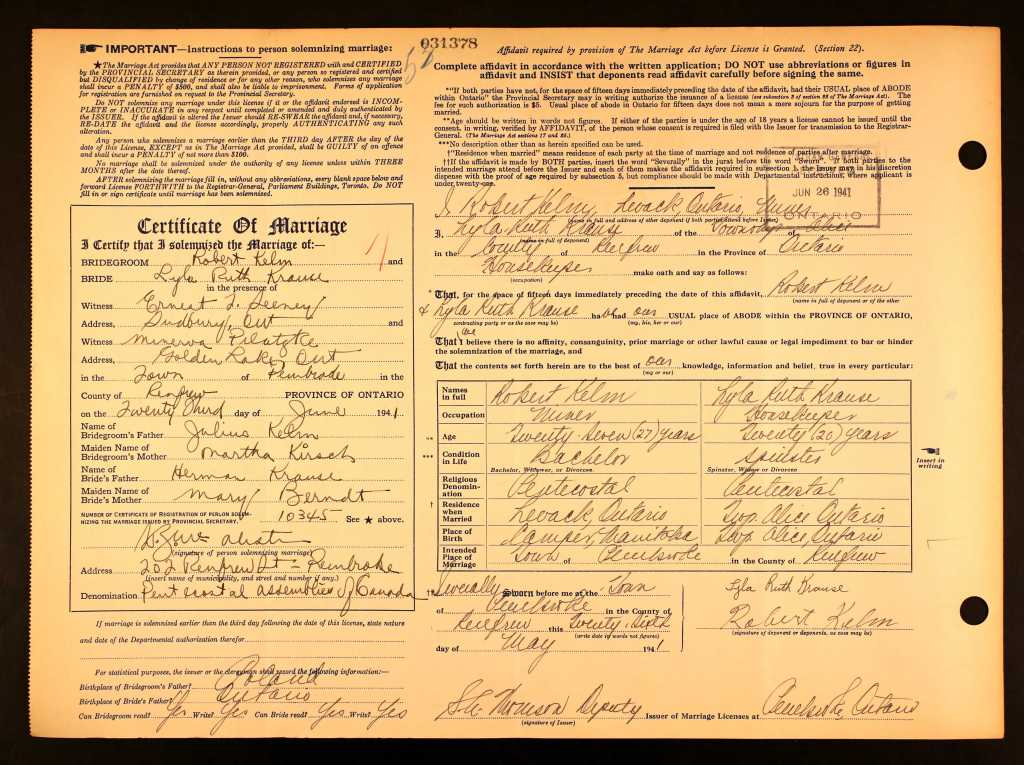 IMPORTANT—Instructions to person solemnizing marriage:
★The Marriage Act provides that ANY PERSON NOT REGISTERED WITH and CERTIFIED
by the PROVINCIAL SECRETARY as herein provided, or any person so registered and certified
but DISQUALIFIED by change of residence or for any other reason, who solemnizes any marriage
shall incur a PENALTY of $500, and shall also be liable to imprisonment. Forms of application
for registration are furnished on request to the Provincial Secretary.
Do NOT solemnize any marriage under this license if it or the affidavit endorsed is INCOM-
PLETE or INACCURATE in any respect until completed or amended and duly authenticated by
the ISSUER. If the affidavit is altered the Issuer should RE-SWEAR the affidavit and, if necessary,
RE-DATE the affidavit and the license accordingly, properly AUTHENTICATING any such
alteration.
Any person who solemnizes a marriage earlier than the THIRD DAY AFTER the day of the
date of this License, EXCEPT as in The Marriage Act provided, shall be GUILTY of an offence
and shall incur a PENALTY of not more than $100.
No marriage shall be solemnized under the authority of any license unless within THREE
MONTHS after the date thereof.
AFTER solemnizing the marriage fill in, without any abbreviations, every blank space below and
forward License FORTHWITH to the Registrar-General, Parliament Buildings, Toronto. Do NOT
fill in or sign certificate until marriage has been solemnized.
Certificate Of Marriage
I Certify that I solemnized the Marriage of:—
BRIDEGROOM Robert Kelm and
BRIDE Lyla Ruth Krause
in the presence of
Witness Ernest
Address, Sudbury, Ont
Witness Minerva
Address, Golden Lake, Ont
in the Town of Pembroke in the
County of Renfrew PROVINCE OF ONTARIO
on the Twenty Third day of June 1941
Name of Bridegroom's Father Julius Kelm
Maiden Name of Bridegroom's Mother Martha Kirsch
Name of Bride's Father Herman Krause
Maiden Name of Bride's Mother Mary Berndt
NUMBER OF CERTIFICATE OF REGISTRATION OF PERSON SOLEM-
NIZING THE MARRIAGE ISSUED BY PROVINCIAL SECRETARY. 10345 See ★ above.
(signature of person solemnizing marriage)
Address 202 Renfrew St = Pembroke
(insert name of municipality, and street and number if any.)
Denomination Pentecostal assemblies of Canada
If marriage is solemnized earlier than the third day following the date of this license, state nature
and date of the Departmental authorization therefor
For statistical purposes, the issuer or the clergyman shall record the following information:—
Birthplace of Bridegroom's Father? Poland
Birthplace of Bride's Father? Ontario
Can Bridegroom read? Yes Write? Yes Can Bride read? Yes Write? Yes
031378
52
Affidavit required by provision of The Marriage Act before License is Granted. (Section 22).
Complete affidavit in accordance with the written application; DO NOT use abbreviations or figures in
affidavit and INSIST that deponents read affidavit carefully before signing the same.
**If both parties have not, for the space of fifteen days immediately preceding the date of the affidavit, had their USUAL PLACE OF ABODE
within Ontario" the Provincial Secretary may in writing authorize the issuance of a license (see subsection 3 of section 18 of The Marriage Act). The
fee for such authorization is $5. Usual place of abode in Ontario for fifteen days does not mean a mere sojourn for the purpose of getting
married.
**Age should be written in words not figures. If either of the parties is under the age of 18 years a license cannot be issued until the
consent, in writing, verified by AFFIDAVIT, of the person whose consent is required is filed with the Issuer for transmission to the Registrar-
General. (The Marriage Act sections 17 and 26).
***No description other than as herein specified can be used.
†"Residence when married" means residence of each party at the time of marriage and not residence of parties after marriage.
††If the affidavit is made by BOTH parties, insert the word "Severally" in the jurat before the word "Sworn". If both parties to the
intended marriage attend before the Issuer and each of them makes the affidavit required in subsection 1, the Issuer may, in his discretion
dispense with the proof of age required by subsection 5, but compliance should be made with Departmental instructions, where applicant is
under twenty-one.
JUN 26 1941
ONTARIO
I Robert Kelm, Levack, Ontario, Miner
(name in full and address of other deponent if both parties attend before Issuer)
I, Lyla Ruth Krause of the Township Alice
(name in full of deponent)
in the County of Renfrew in the Province of Ontario
Housekeeper make oath and say as follows:
(occupation)
That, for the space of fifteen days immediately preceding the date of this affidavit, Robert Kelm
(name in full of deponent or of the other
& Lyla Ruth Krause have had our USUAL place of ABODE within the PROVINCE OF ONTARIO,
contracting party or as the case may be) (my, his, her or our)
we
That I believe there is no affinity, consanguinity, prior marriage or other lawful cause or legal impediment to bar or hinder
the solemnization of the marriage, and
That the contents set forth herein are to the best of our knowledge, information and belief, true in every particular:
(my or our)
Names in full Robert Kelm Lyla Ruth Krause
Occupation Miner Housekeeper
** Age Twenty-Seven (27) years Twenty (20) years
*** Condition in Life Bachelor Spinster
Bachelor, Widower, or Divorcee. Spinster, Widow or Divorcee
Insert in writing
Religious Denomination Pentecostal Pentecostal
† Residence when Married Levack, Ontario Twp. Alice Ontario
Place of Birth Camper, Manitoba Twp Alice, Ontario
Intended Place of Marriage Town of Pembroke in the County of Renfrew
†† Severally Sworn before me at the Town
of Pembroke in the County of
Renfrew this Twenty-Sixth
(write date in words not figures)
day of May 1941
Lyla Ruth Krause
Robert Kelm
(signature of deponent or deponents, as case may be)
Thomson Deputy Issuer of Marriage Licenses at Pembroke, Ontario
(signature of Issuer)